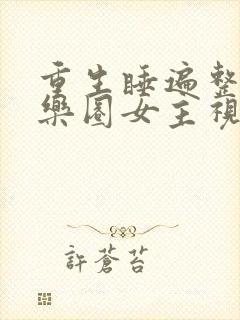 重生睡遍整
樂圈女主視
許蒼苔